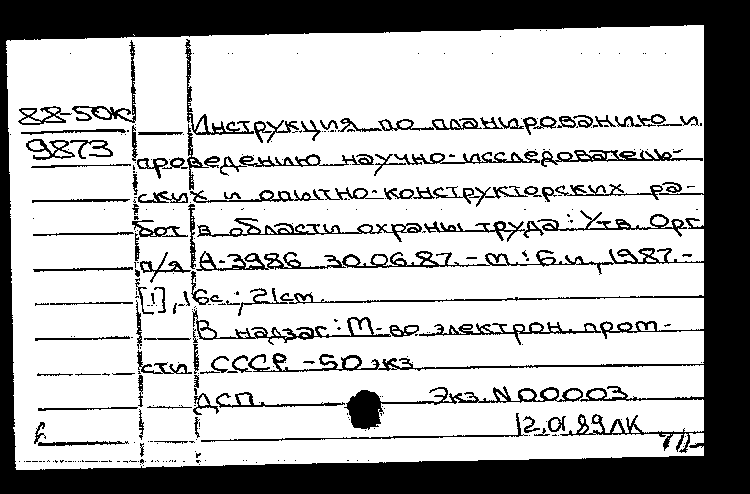 88-50к
9873
Инструкция по планированию и
проведению научно-исследователь-
ских и опытно-конструкторских ра-
бот в области охраны труда: Утв. Орг.
п/я А-3986 30.06.87.-М.: Б.и., 1987.-
[1], 16с.; 21см.
В надзаг.: М-во электрон. пром-
сти СССР. -50 экз
ДСП. Экз. N 00003.
12.01.89 ЛК